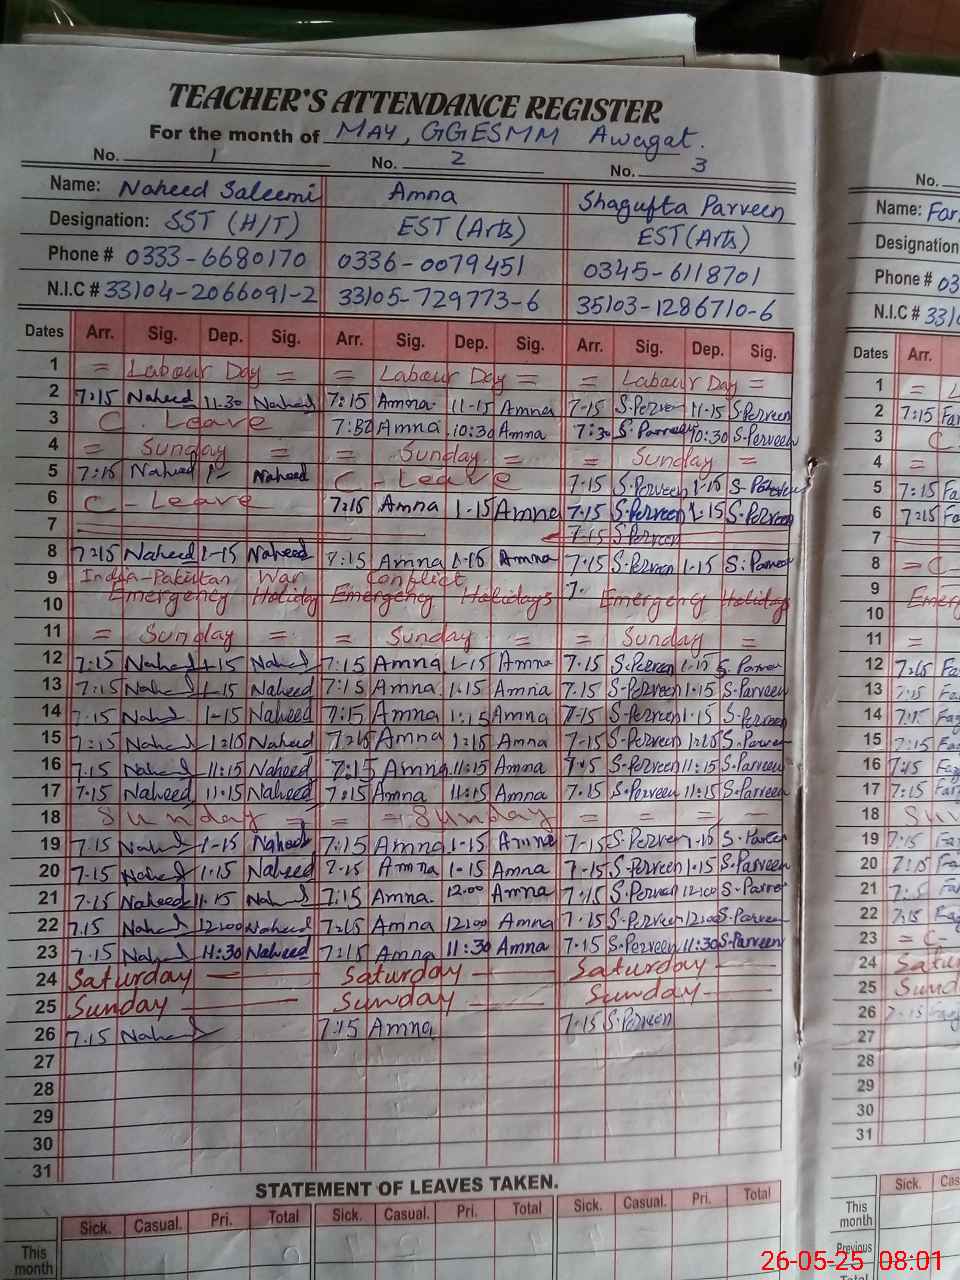 TEACHER'S ATTENDANCE REGISTER
For the month of MAY, GGESMM Awagat.
No. 1 No. 2 No. 3 No.
Name: Naheed Saleemi Amna Shagufta Parveen Name: Far
Designation: SST (H/T) EST (Arts) EST (Arts) Designation
Phone # 0333-6680170 0336-0079451 0345-6118701 Phone # 03
N.I.C # 33104-2066091-2 33105-729773-6 35103-1286710-6 N.I.C # 331
Dates Arr. Sig. Dep. Sig. Arr. Sig. Dep. Sig. Arr. Sig. Dep. Sig. Dates Arr.
1 = Labour Day = = Labour Day = = Labour Day = 1 = L
2 7:15 Naheed 11.30 Naheed 7:15 Amna 11-15 Amna 7-15 S.Perveen 11-15 S.Perveen 2 7:15 Far
3 C. Leave Amna 10:30 Amna 7:30 S.Parveen 10:30 S.Perveen 3 C
4 = Sunday = = Sunday = = Sunday = 4 =
5 7:15 Naheed 1- Naheed C - Leave 7-15 S.Perveen 1-15 S-Parveen 5 7:15 Far
6 C - Leave 7:15 Amna 1-15 Amna 7-15 S.Perveen 1:15 S.Perveen 6 7:15 Fa
7 7-15 S.Perveen 7
8 7:15 Naheed 1-15 Naheed 7:15 Amna 1-15 Amna 7-15 S.Perveen 1-15 S.Parveen 8 = C-
9 India-Pakistan War Conflict 7- 9
10 Emergency Holiday Emergency Holidays Emergency Holidays 10
11 = Sunday = = Sunday = = Sunday = 11 =
12 7:15 Naheed 1-15 Naheed 7:15 Amna 1-15 Amna 7-15 S.Perveen 1-15 S.Parveen 12 7:15 Fa
13 7:15 Naheed 1-15 Naheed 7:15 Amna 1.15 Amna 7.15 S-Perveen 1.15 S.Parveen 13 7:15 Fa
14 7:15 Naheed 1-15 Naheed 7:15 Amna 1:15 Amna 7-15 S-Perveen 1.15 S.Perveen 14 7:15 Fa
15 7:15 Naheed 1:15 Naheed 7:15 Amna 1:15 Amna 7-15 S-Perveen 1:15 S.Parveen 15 7:15 Fa
16 7.15 Naheed 11:15 Naheed 7:15 Amna 11:15 Amna 7.15 S-Perveen 11:15 S.Parveen 16 7:15 Fa
17 7.15 Naheed 11.15 Naheed 7:15 Amna 11:15 Amna 7.15 S.Perveen 11:15 S.Parveen 17 7:15 Far
18 Sunday = = = Sunday = = = = 18 Su
19 7.15 Naheed 1-15 Naheed 7:15 Amna 1-15 Amna 7-15 S.Perveen 1-15 S.Parveen 19 7:15 Fa
20 7.15 Naheed 1.15 Naheed 7-15 Amna 1-15 Amna 7-15 S.Perveen 1.15 S.Parveen 20 7:15 Fa
21 7-15 Naheed Naheed 7:15 Amna 12.00 Amna 7:15 S.Perveen 12:00 S-Parveen 21 Fa
22 7.15 Naheed 12:00 Naheed 7:15 Amna 12:00 Amna 7.15 S.Perveen 12:00 S.Parveen 22 7:15
23 7.15 Naheed 11:30 Naheed 7:15 Amna 11:30 Amna 7.15 S-Perveen 11:30 S.Parveen 23 = C-
24 Saturday — Saturday — Saturday — 24 Satu
25 Sunday — Sunday — Sunday — 25 Sund
26 7.15 Naheed 7:15 Amna 7-15 S.Perveen 26 7-15
27 27
28 28
29 29
30 30
31 31
STATEMENT OF LEAVES TAKEN.
Sick. Casual. Pri. Total Sick. Casual. Pri. Total Sick. Casual. Pri. Total Sick. Cas
This month This month
Previous
Total
26-05-25 08:01